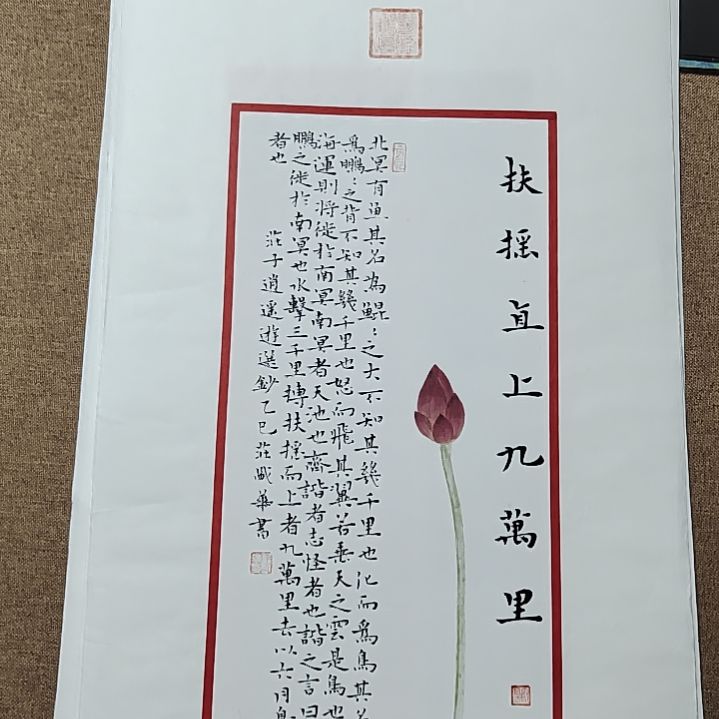 扶摇直上九萬里
北冥有魚其名為鯤〻之大不知其幾千里也化而爲鳥其名
爲鵬〻之背不知其幾千里也怒而飛其翼若垂天之雲是鳥也
海運則將徙於南冥南冥者天池也齊諧者志怪者也諧之言曰
鵬之徙於南冥也水擊三千里摶扶摇而上者九萬里去以六月息
者也
莊子逍遥遊選鈔乙巳莊華書